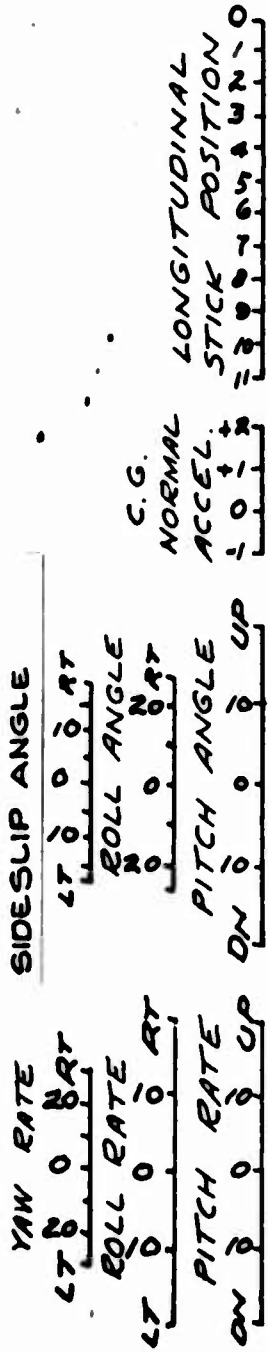 YAW RATE
LT 20 0 20 RT
ROLL RATE
LT 10 0 10 RT
PITCH RATE
DN 10 0 10 UP
SIDESLIP ANGLE
LT 10 0 10 RT
ROLL ANGLE
LT 20 0 20 RT
PITCH ANGLE
DN 10 0 10 UP
C.G.
NORMAL
ACCEL.
-1 0 +1 +2
LONGITUDINAL
STICK POSITION
11 10 9 8 7 6 5 4 3 2 1 0